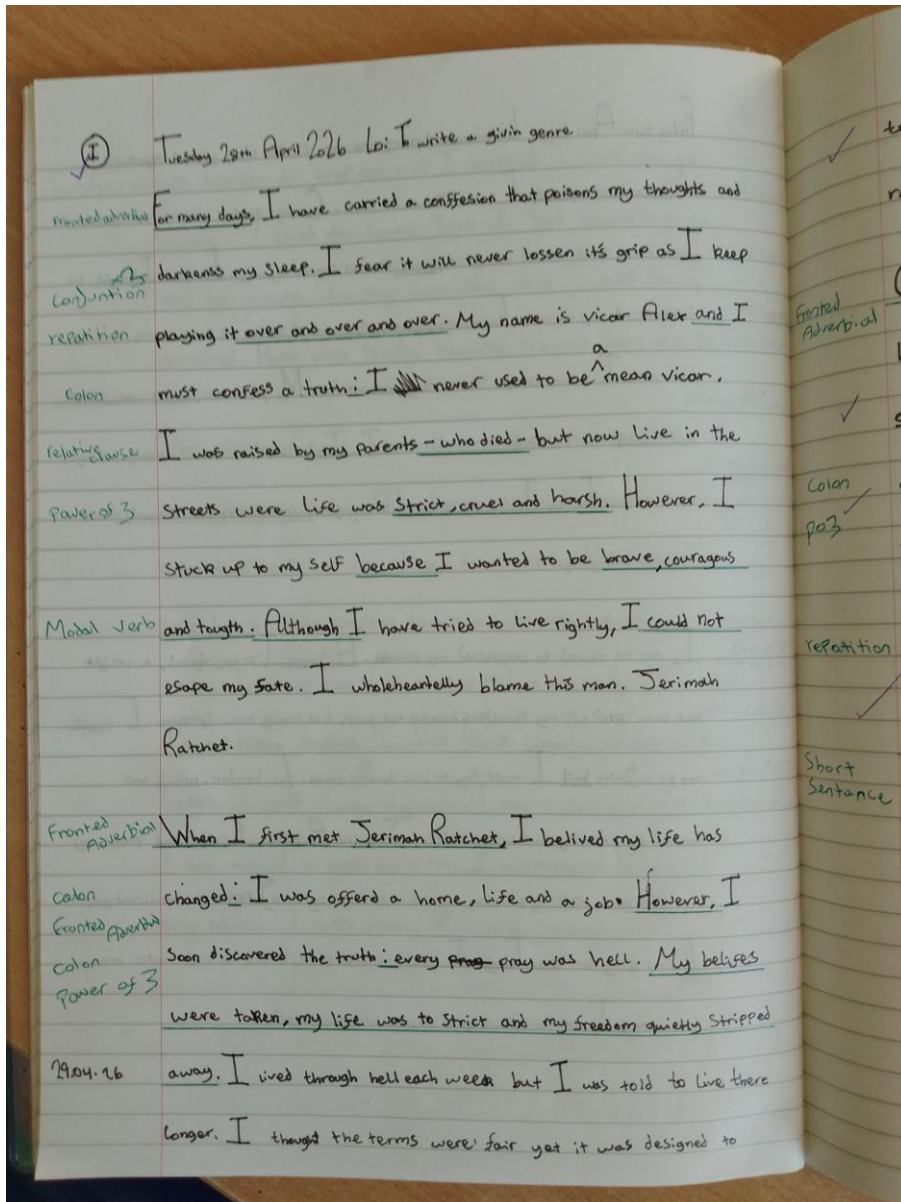 I Tuesday 28th April 2026 Lo: To write a givin genre
Fronted adverbial For many days, I have carried a conffesion that poisons my thoughts and
darkenss my sleep. I fear it will never lossen it's grip as I keep
Conjuntion x2
repatition playing it over and over and over. My name is vicar Alex and I
Colon must confess a truth: I never used to be a mean vicar.
relative clause I was raised by my parents - who died - but now live in the
Power of 3 streets were life was strict, cruel and harsh. However, I
stuck up to my self because I wanted to be brave, couragous
Modal verb and tougth. Although I have tried to live rightly, I could not
esape my fate. I wholeheartelly blame this man. Jerimah
Ratchet.
Fronted Adverbial When I first met Jerimah Ratchet, I belived my life has
colon changed: I was offerd a home, life and a job. However, I
Fronted Adverbial
colon soon discovered the truth: every pray was hell. My belifes
Power of 3 were taken, my life was to strict and my freedom quietly stripped
29.04.26 away. I lived through hell each week but I was told to live there
longer. I thought the terms were fair yet it was designed to
Fronted
Adverbial
Colon
po3
repatition
Short
Sentance